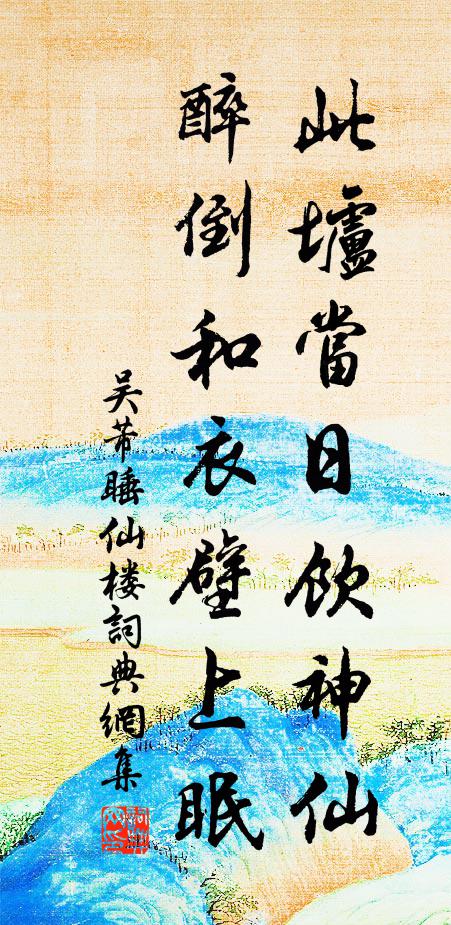 此壚當日飲神仙
醉倒和衣壁上眠
吴芾睡仙楼詞典網集